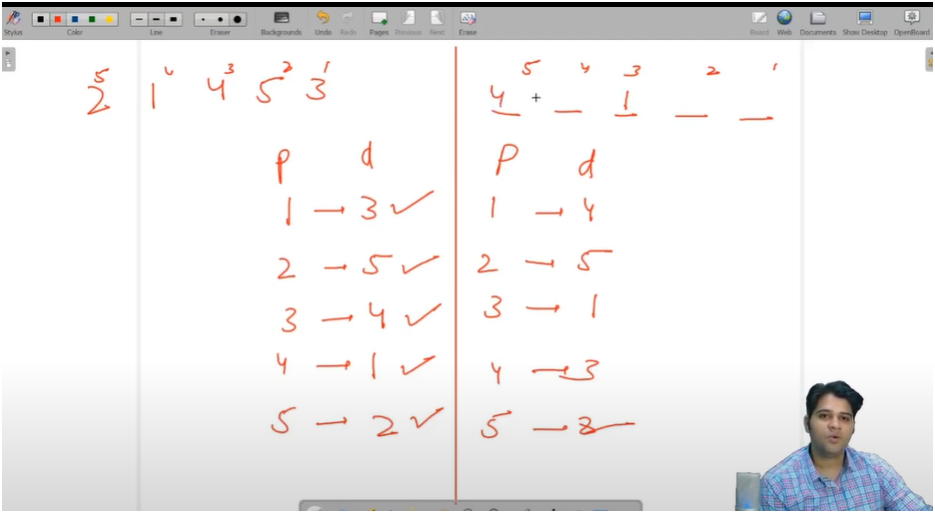 Stylus Color Line Eraser Backgrounds Undo Redo Pages Previous Next Erase Board Web Documents Show Desktop OpenBoard
5 4 3 2 1
2 1 4 5 3
5 4 3 2 1
4 _ 1 _ _
p d
1 → 3 ✓
2 → 5 ✓
3 → 4 ✓
4 → 1 ✓
5 → 2 ✓
P d
1 → 4
2 → 5
3 → 1
4 → 3
5 → 2